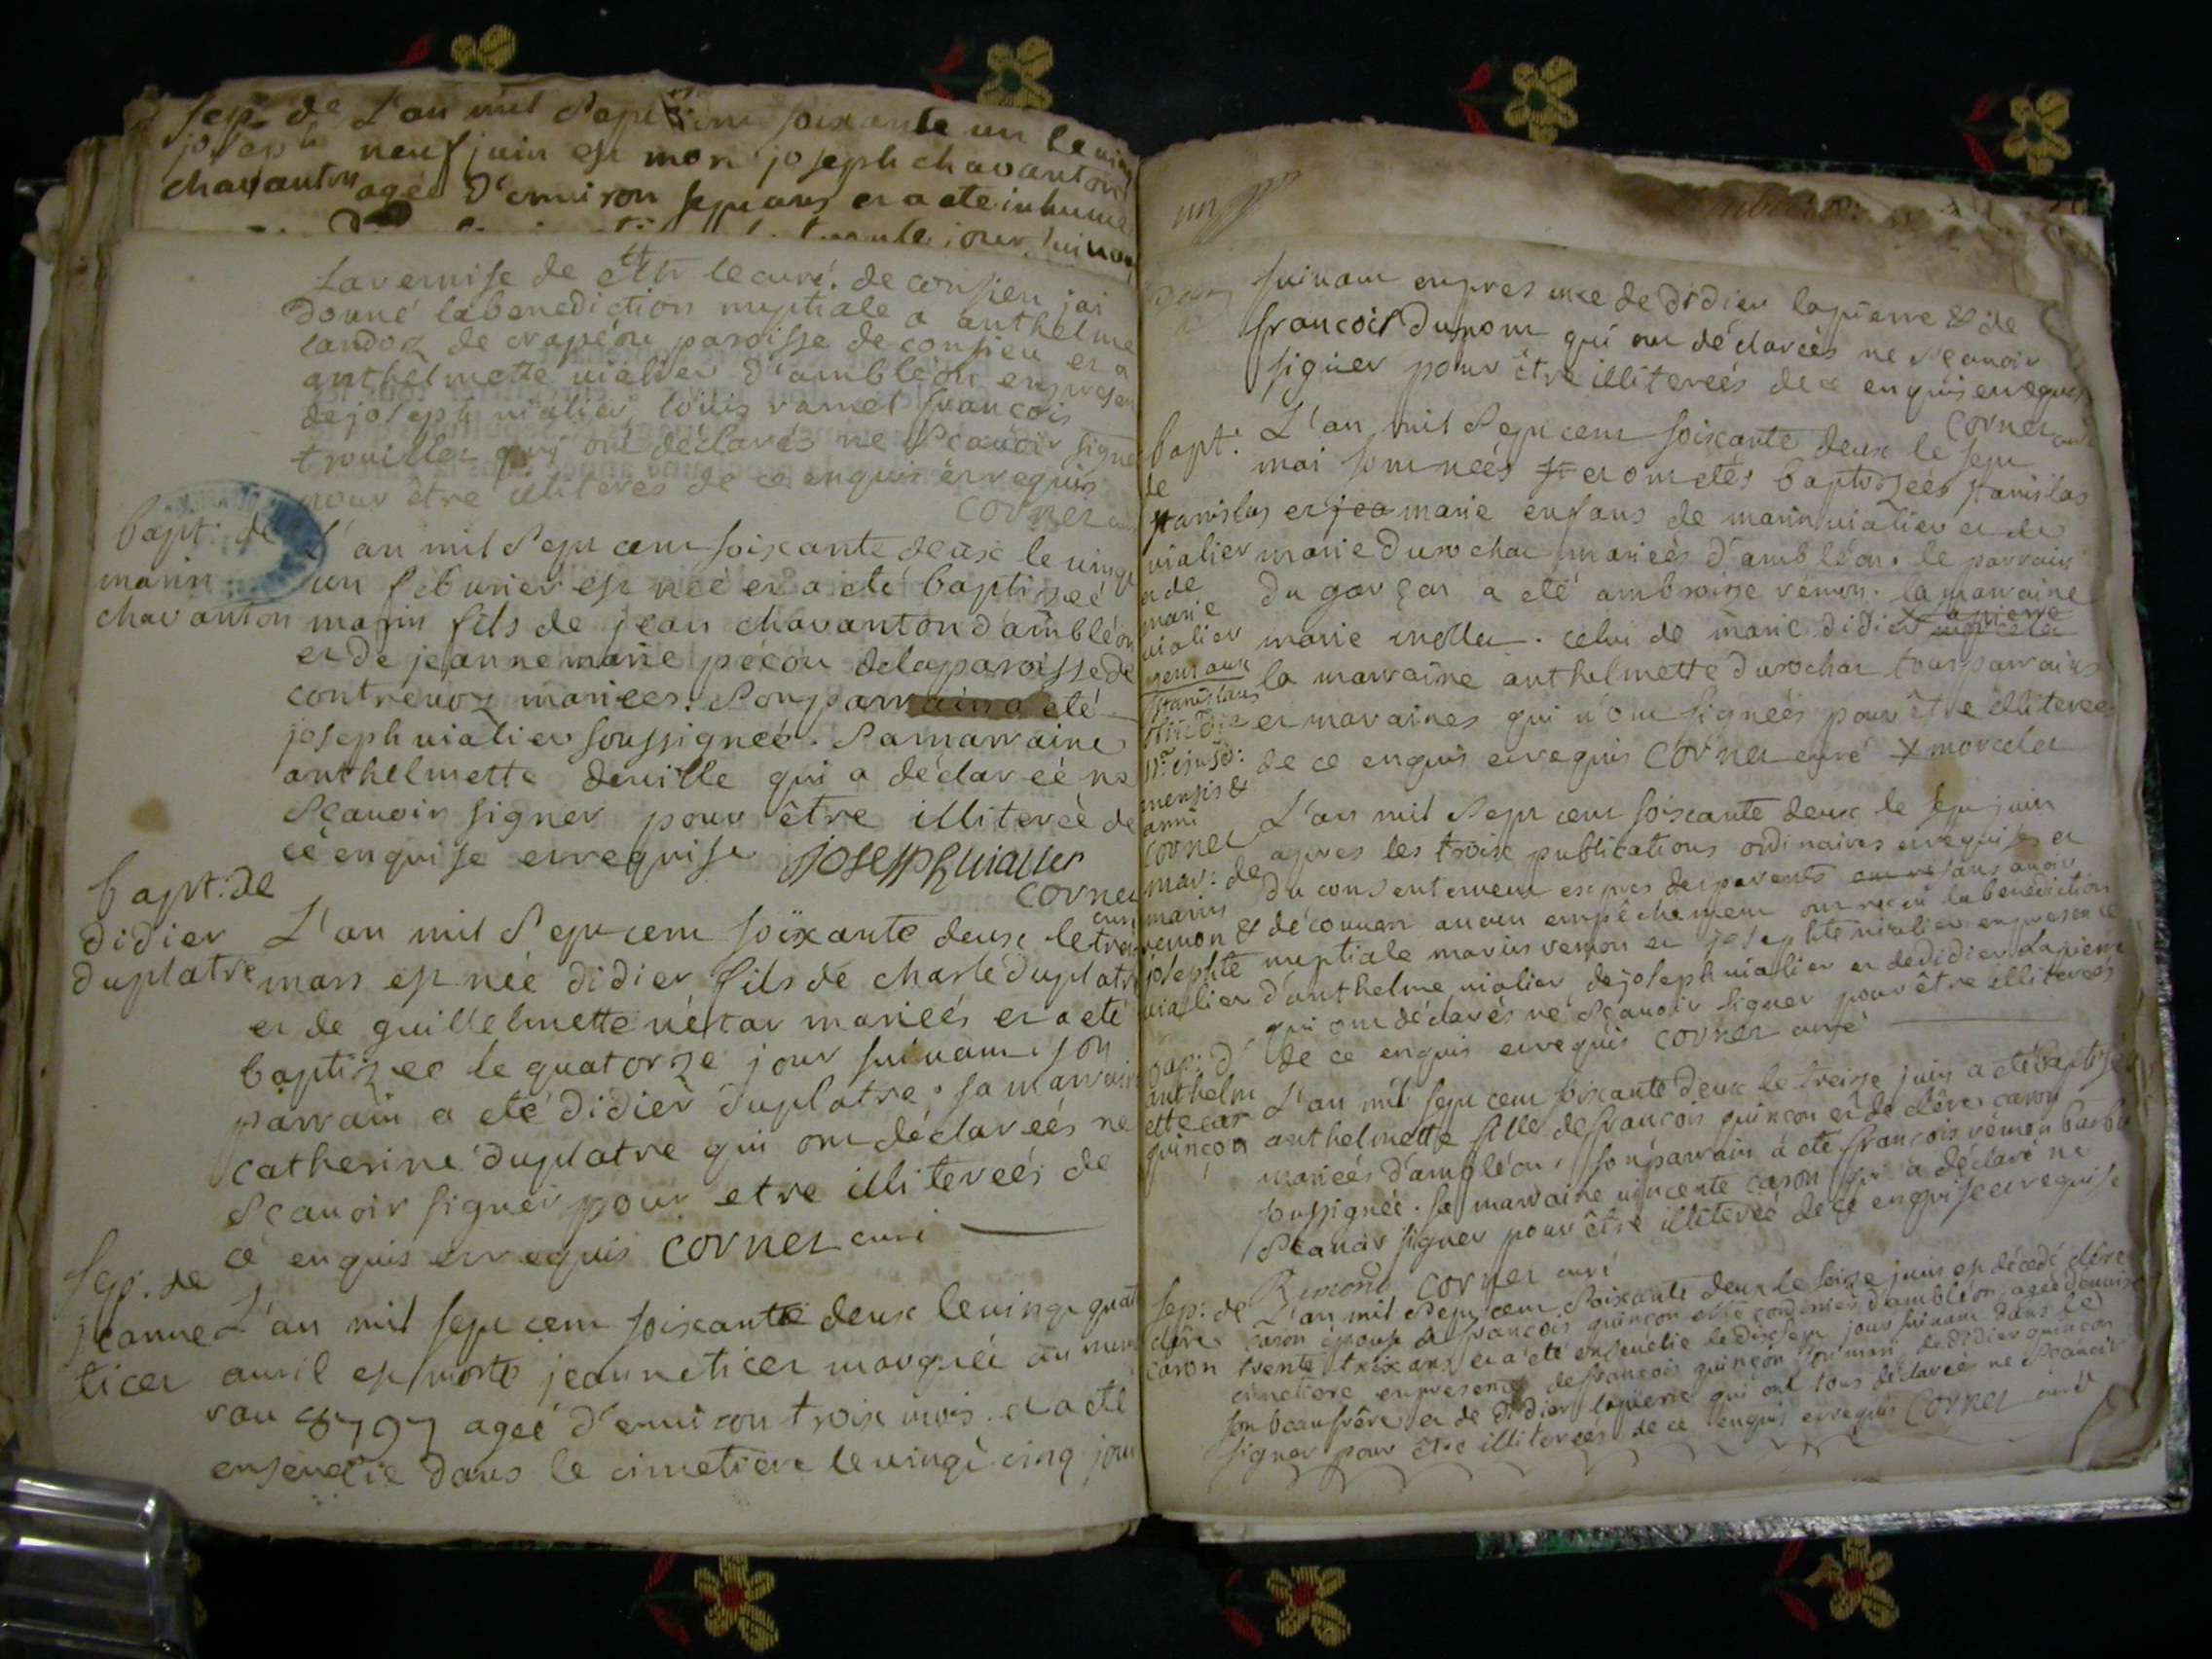 sep. de L'an mil sept cent soixante un le
joseph neuf juin est mort joseph chavanton
chavanton agée d'environ sept ans et a ete inhumé
la remise de le curé de consieu jai
donné la benediction nuptiale a anthelme
landoz de crapéou paroisse de consieu et a
anthelmette vialier d'ambléon en presen
de joseph vialier loüis ramel francois
trouillet qui ont déclarés ne scavoir signe
pour être illiterés de ce enquis et requis
cornet
bapt: de L'an mil sept cent soixante deux le vingt
marin un feburier est née et a eté baptizeé
chavanton marin fils de jean chavanton d'ambléon
et de jeanne marie pécou de la paroisse de
contrevoz mariees. Son parrain a eté
joseph vialier soussigneé. Sa marraine
anthelmette deville qui a déclareé ne
sçavoir signer pour être illitereè de
ce enquise et requise joseph vialier
cornet
curé
bapt: de
didier L'an mil sept cent soixante deux le
duplatre mars est née didier fils de charle duplatre
et de guillelmette néctar marieés et a eté
baptizee le quatorze jour suivant. son
parrain a eté didier duplatre. sa marraine
catherine duplatre qui ont déclareés ne
sçavoir signer pour etre illitereés de
ce enquis et requis cornet curé
sep. de
jeanne L'an mil sept cent soixante deux le vingt quat
ticet avril est morte jeanne ticet marqueé au
ageé d'environ troix mois. et a eté
ensevelie dans le cimetiere le vingt cinq jour
suivant en presence de didier lapierre & de
francois dupont qui ont déclareés ne sçavoir
signer pour être illitereés de ce enquis et requis
cornet curé
bapt. L'an mil sept cent soixante deux le sept
de mai sont neés et ont etés baptizeés stanislas
stanislas et jea marie enfans de marin vialier et de
vialier marie durochat marieés d'ambléon. le parrain
et de du garçon a eté ambroise remon. la marraine
marie
vialier marie mollet. celui de marie didier lapierre
gemeaux la marraine anthelmette durochat tous parrains
stanislaus
et maraines qui n'ont signeés pour être illitereés
ejusd: de ce enquis et requis cornet curé x morcelet
mensis &
anni
cornet L'an mil sept cent soixante deux le sept juin
mar: de apres les troix publications ordinaires et requises et
marius du consentement expres des parents sans avoir
remon & découvert aucun empêchement ont recu la benediction
josephte nuptiale marius remon et josephte vialier en presence
vialier d'anthelme vialier, de joseph vialier et de didier lapierre
qui ont déclarés ne sçavoir signer pour être illitereés
bap: d' de ce enquis et requis cornet curé
anthelm
ette car L'an mil sept cent soixante deux le treize juin a eté baptisé
guinçon anthelmette fille de francois guincon et de clére caron
marieés d'ambléon, son parrain a eté francois rémon barbe
soussigneé. sa marraine vincente cason qui a déclaré ne
sçavoir signer pour être illitereé de ce enquise et requise
Rimond cornet curé
sep: de L'an mil sept cent soixante deux le seize juin est décedé clére
clére cason épouse de francois guincon d'ambléon, ageé d'environ
cason trente troix ans et a eté ensevelie le dix sept jour suivant dans le
cimetiere en presence de francois guinçon son mari, de didier guincon
son beaufrére et de didier lapierre qui ont tous déclareés ne scavoir
signer pour être illitereés de ce enquis et requis cornet curé